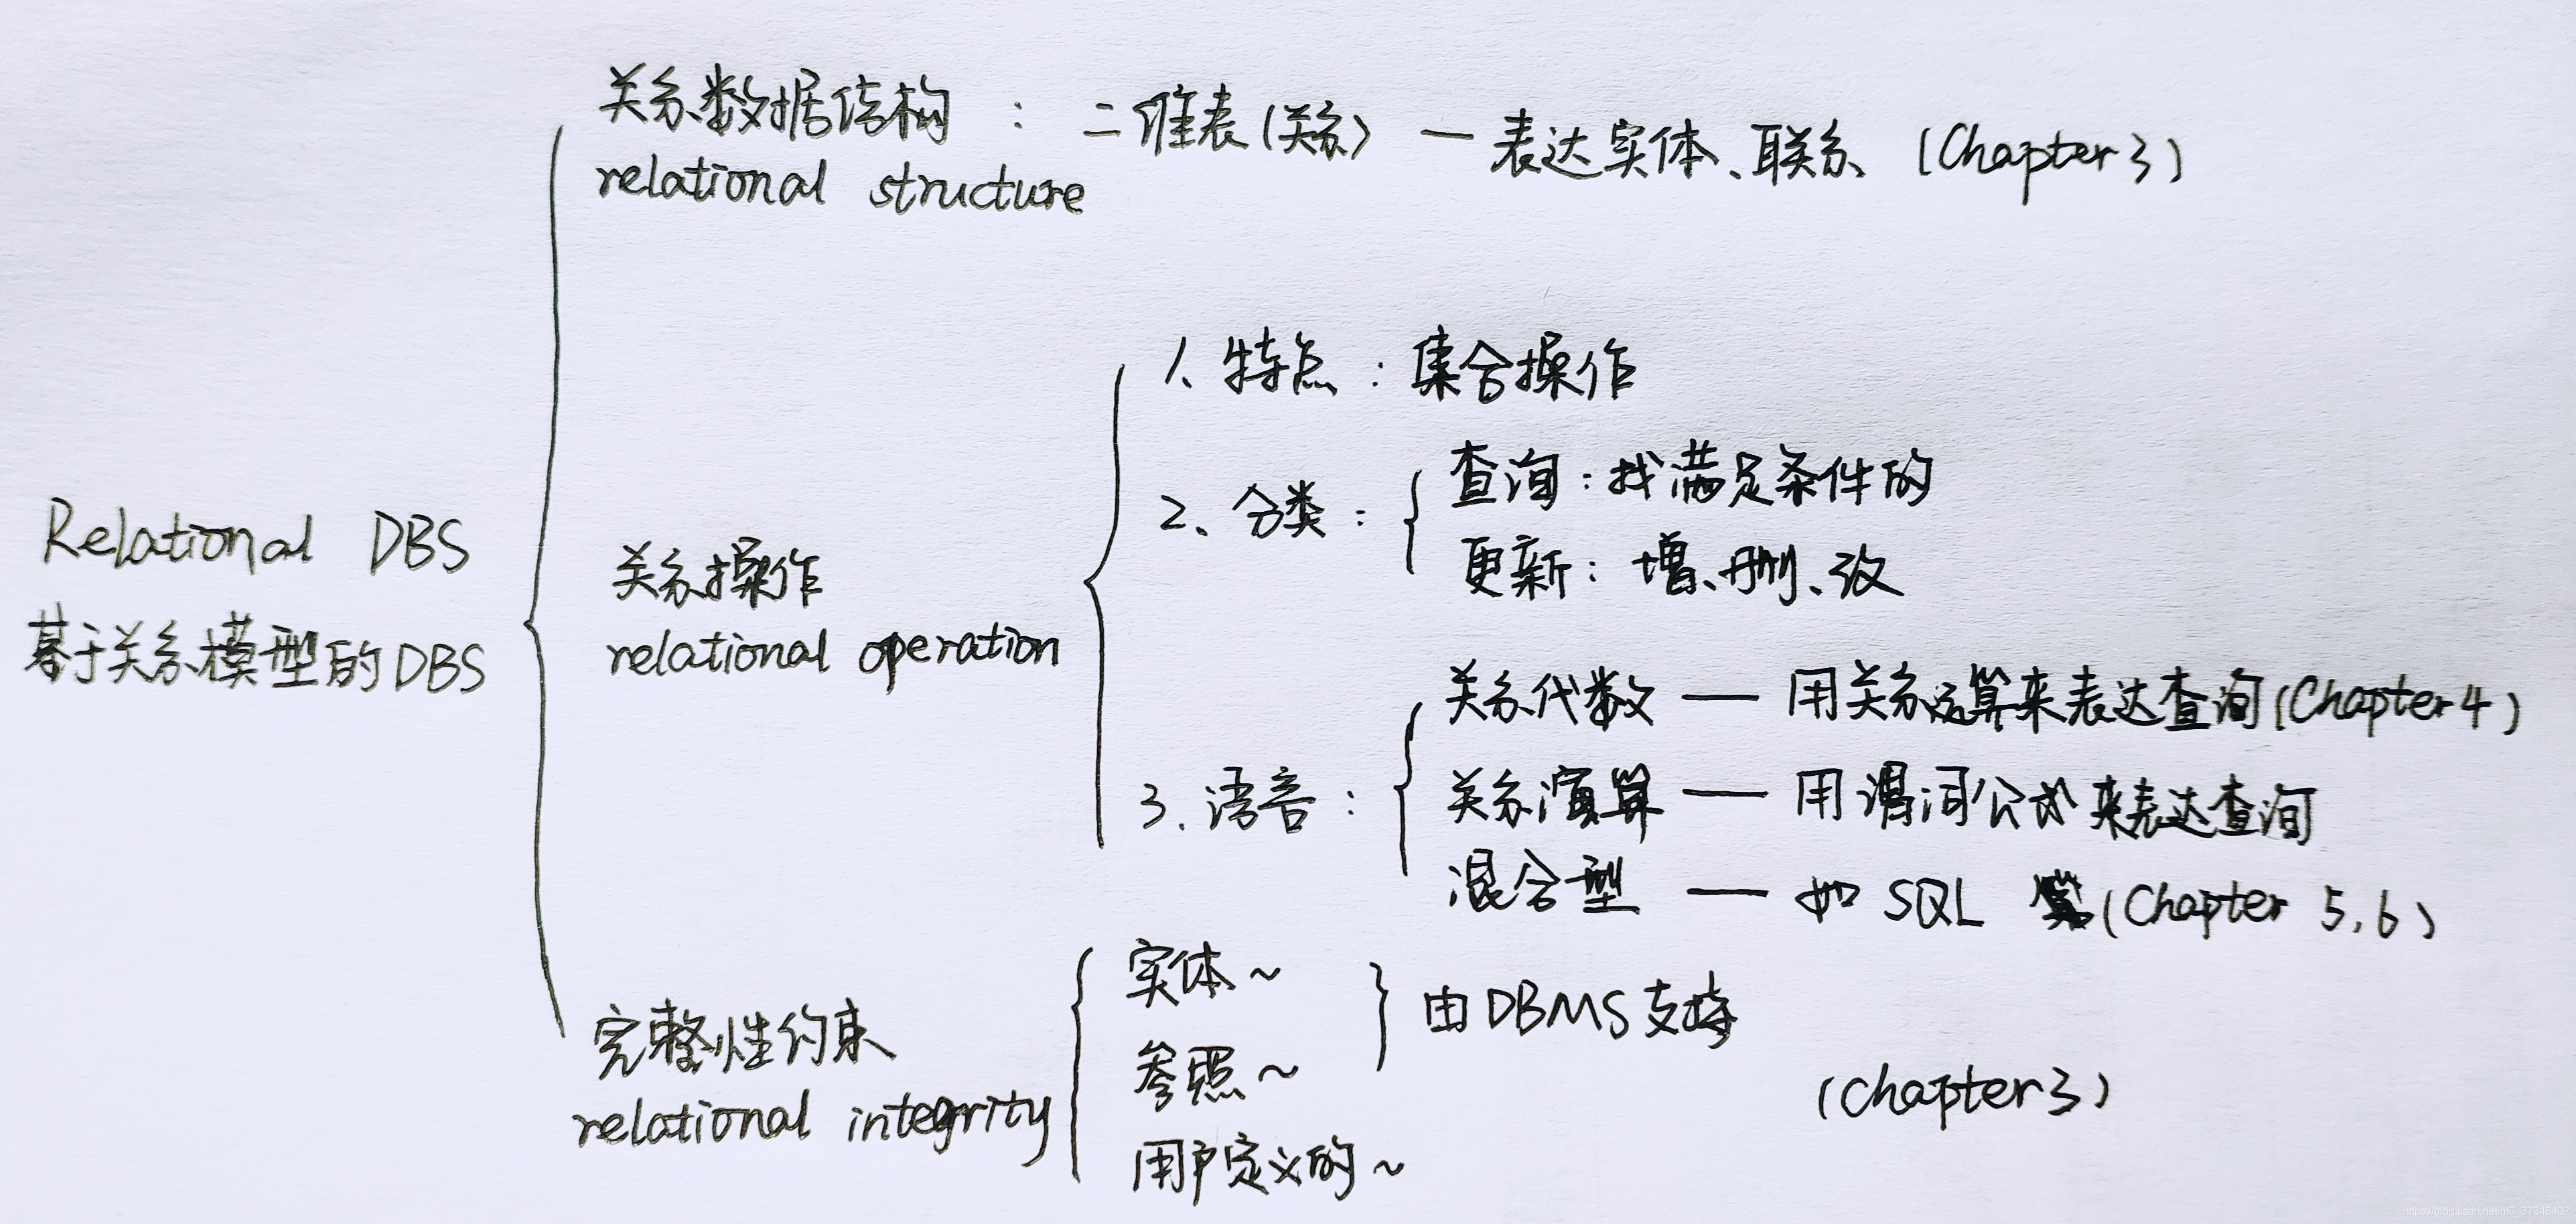 关系数据结构 : 二维表(关系) — 表达实体、联系 (Chapter 3)
relational structure
1、特点 : 集合操作
2、分类 :
查询 : 找满足条件的
更新 : 增、删、改
Relational DBS
基于关系模型的DBS
关系操作
relational operation
3. 语言 :
关系代数 — 用关系运算来表达查询 (Chapter 4)
关系演算 — 用谓词公式来表达查询
混合型 — 如 SQL (Chapter 5, 6)
完整性约束
relational integrity
实体~
参照~
用户定义的~
由DBMS支持
(Chapter 3)
https://blog.csdn.net/m0_37345402